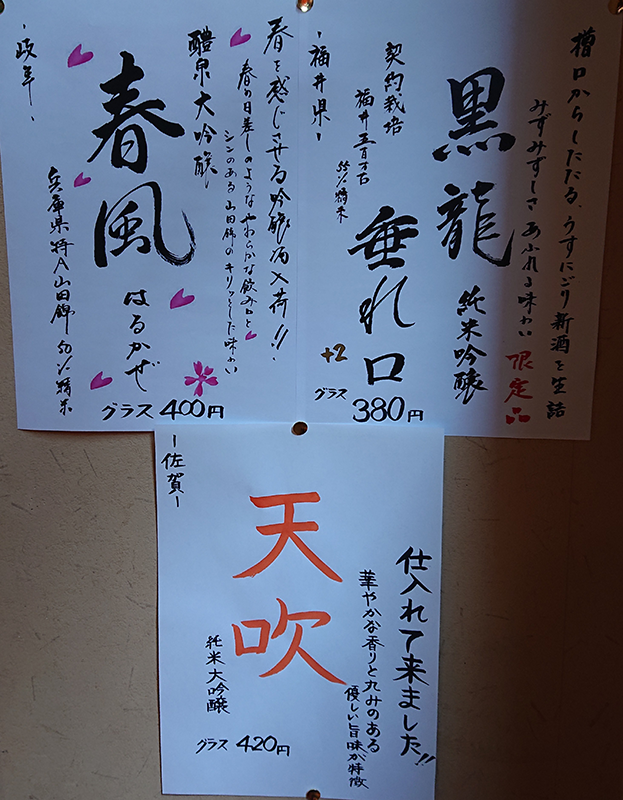 槽口からしたたる、うすにごり新酒を生詰
みずみずしさあふれる味わい
限定品
黒龍
純米吟醸
垂れ口
契約栽培
福井五百万石
55%精米
-福井県-
+2
グラス 380円
春を感じさせる吟醸酒入荷!!
春の日差しのようなやわらかな飲み口と
シンのある山田錦のキリッとした味わい
醴泉大吟醸
春風
はるかぜ
兵庫県特A山田錦 50%精米
-岐阜-
グラス 400円
仕入れて来ました!!
華やかな香りと丸みのある
優しい旨味が特徴
天吹
純米大吟醸
-佐賀-
グラス 420円